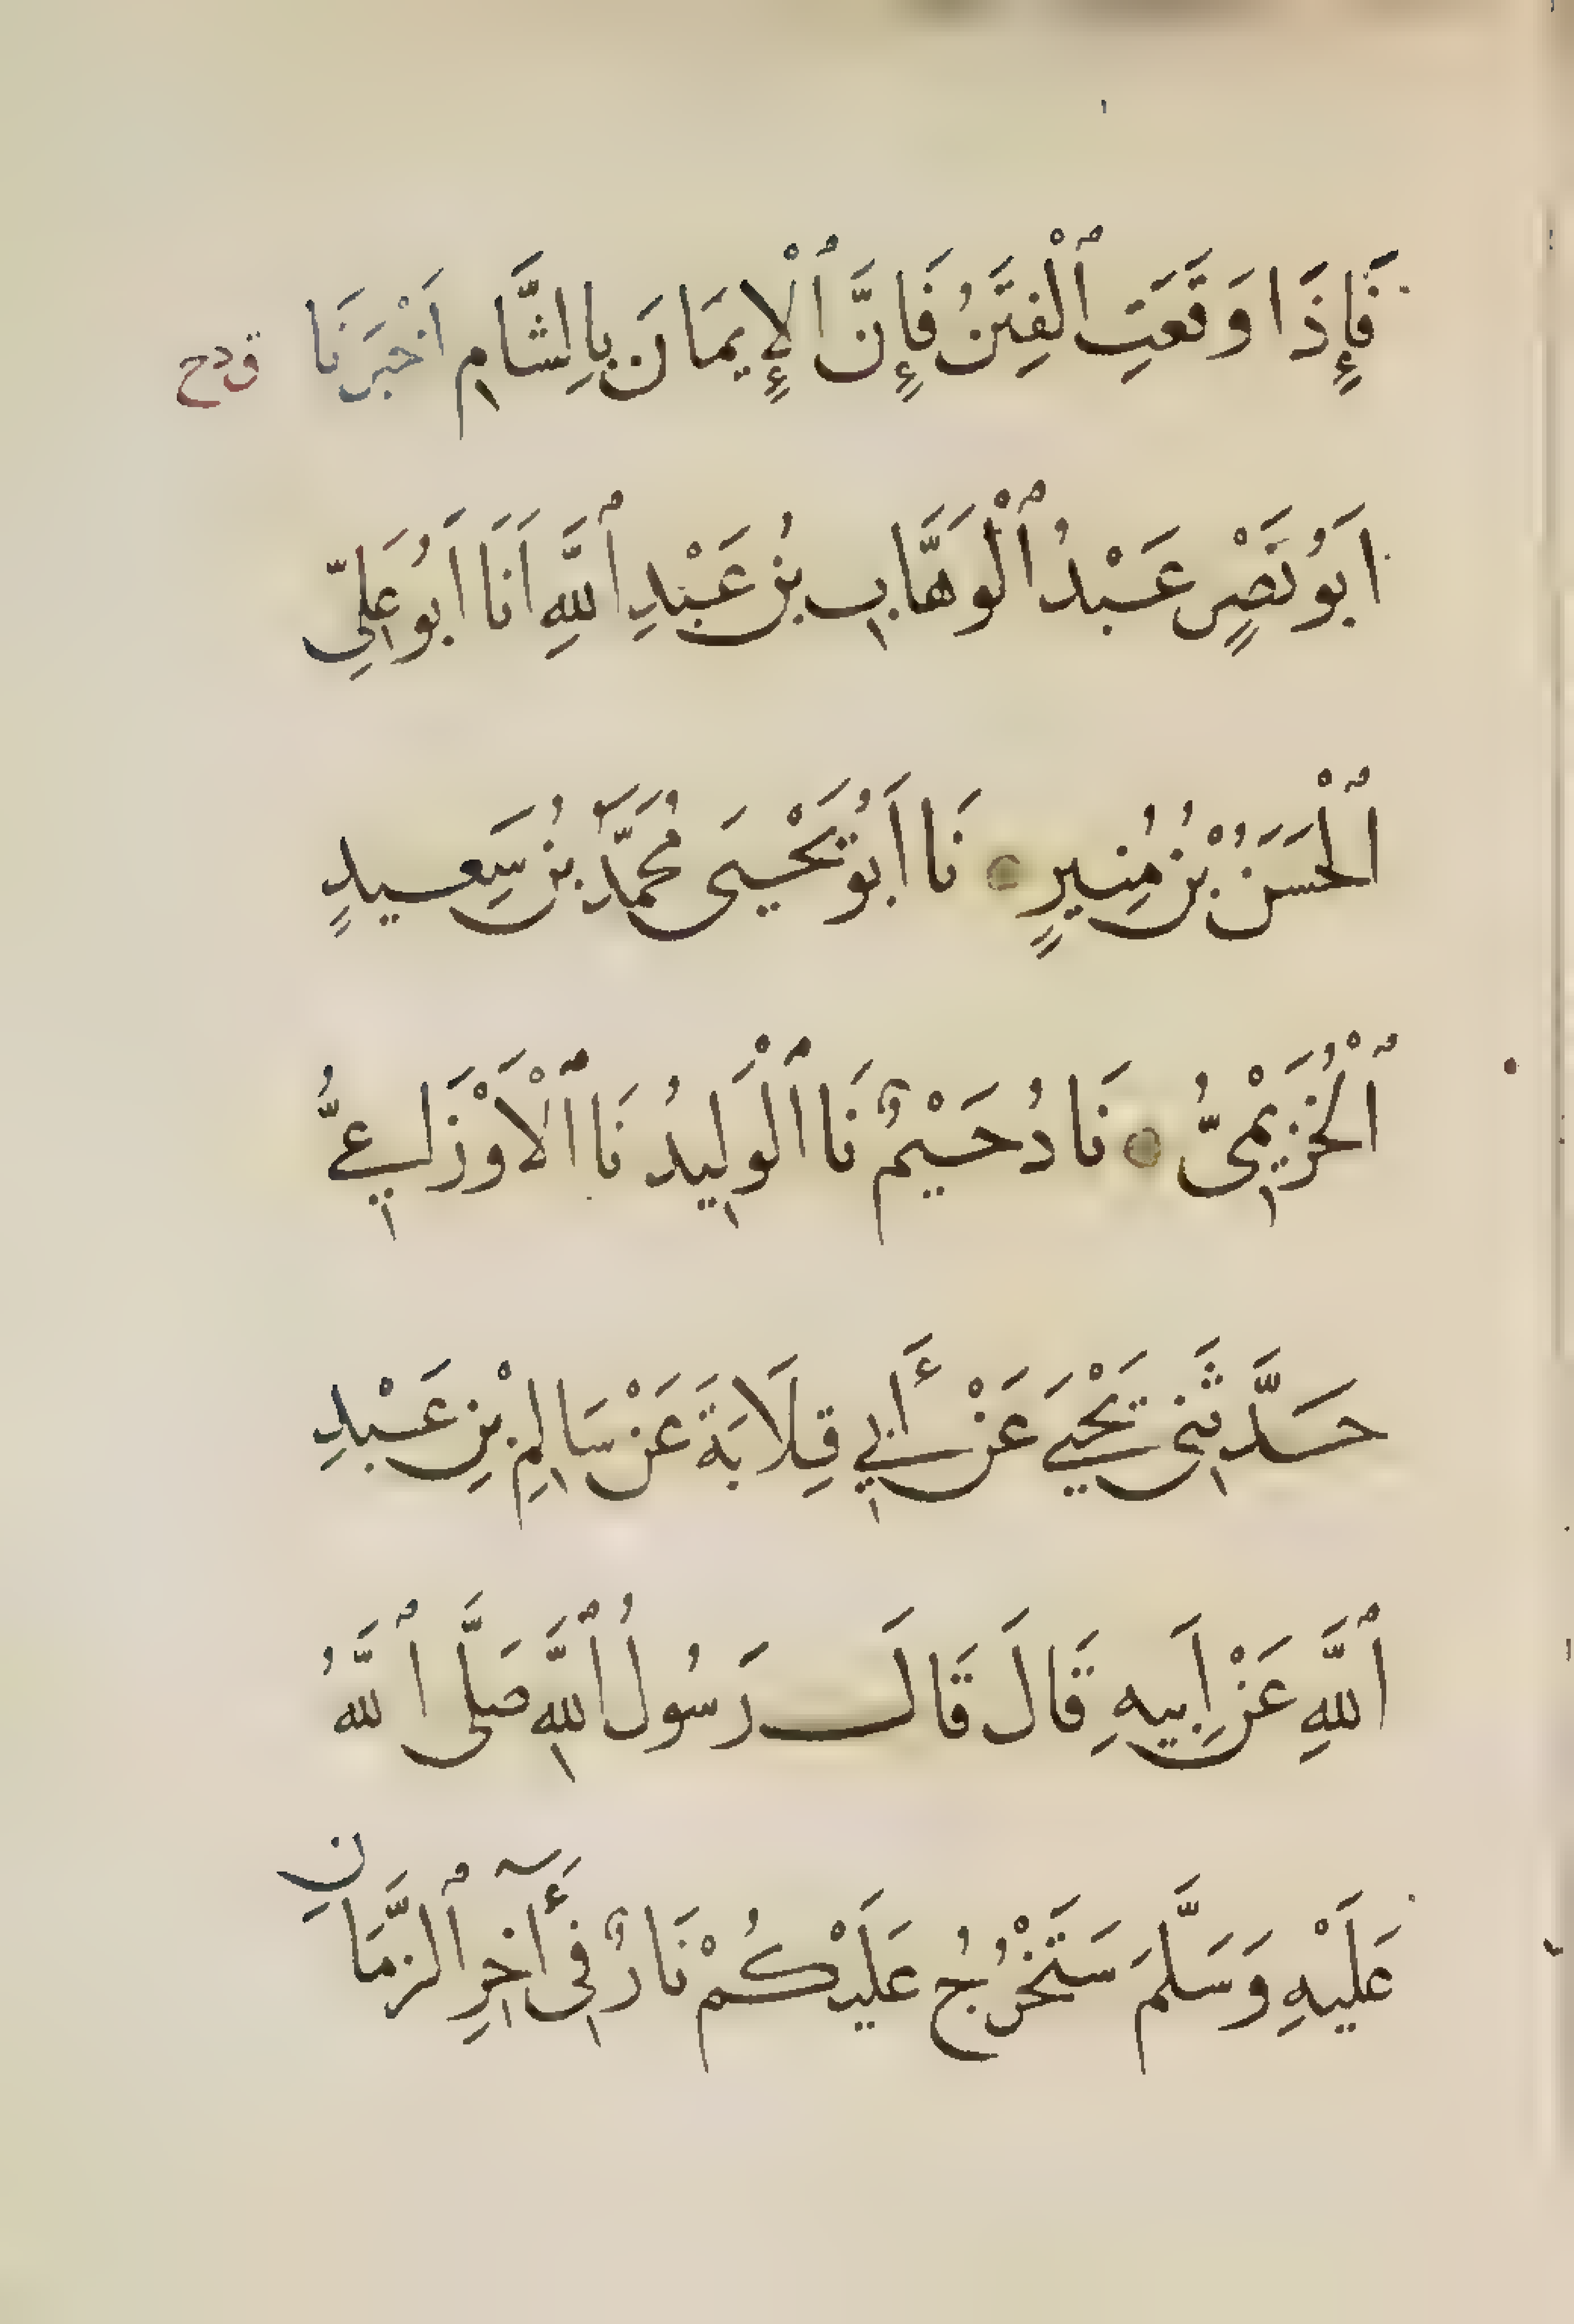 فَإِذَا وَقَعَتِ ٱلْفِتَنُ فَإِنَّ ٱلْإِيمَانَ بِالِشَّامِ اَخْبَرَنَا
اَبُو نَصْرٍ عَبْدُ ٱلْوَهَّابِ بْنُ عَبْدِ ٱللَّهِ اَنَا اَبُو عَلِيّ
ٱلْحَسَنُ بْنُ مُنِيرٍ نَا اَبُو يَحْيَى مُحَمَّدُ بْنُ سَعِيدٍ
ٱلْخُرَيْمِىُّ نَا دُحَيْمٌ نَا ٱلْوَلِيدُ نَا ٱلْاَوْزَاعِىُّ
حَدَّثَنِى يَحْيَى عَنْ أَبِي قِلَابَةَ عَنْ سَالِمِ بْنِ عَبْدِ
ٱللَّهِ عَنْ اَبِيهِ قَالَ قَالَ رَسُولُ ٱللَّهِ صَلَّى ٱللَّهُ
عَلَيْهِ وَسَلَّمَ سَتَخْرُجُ عَلَيْكُمْ نَارٌ فِى آخِرِ ٱلزَّمَانِ